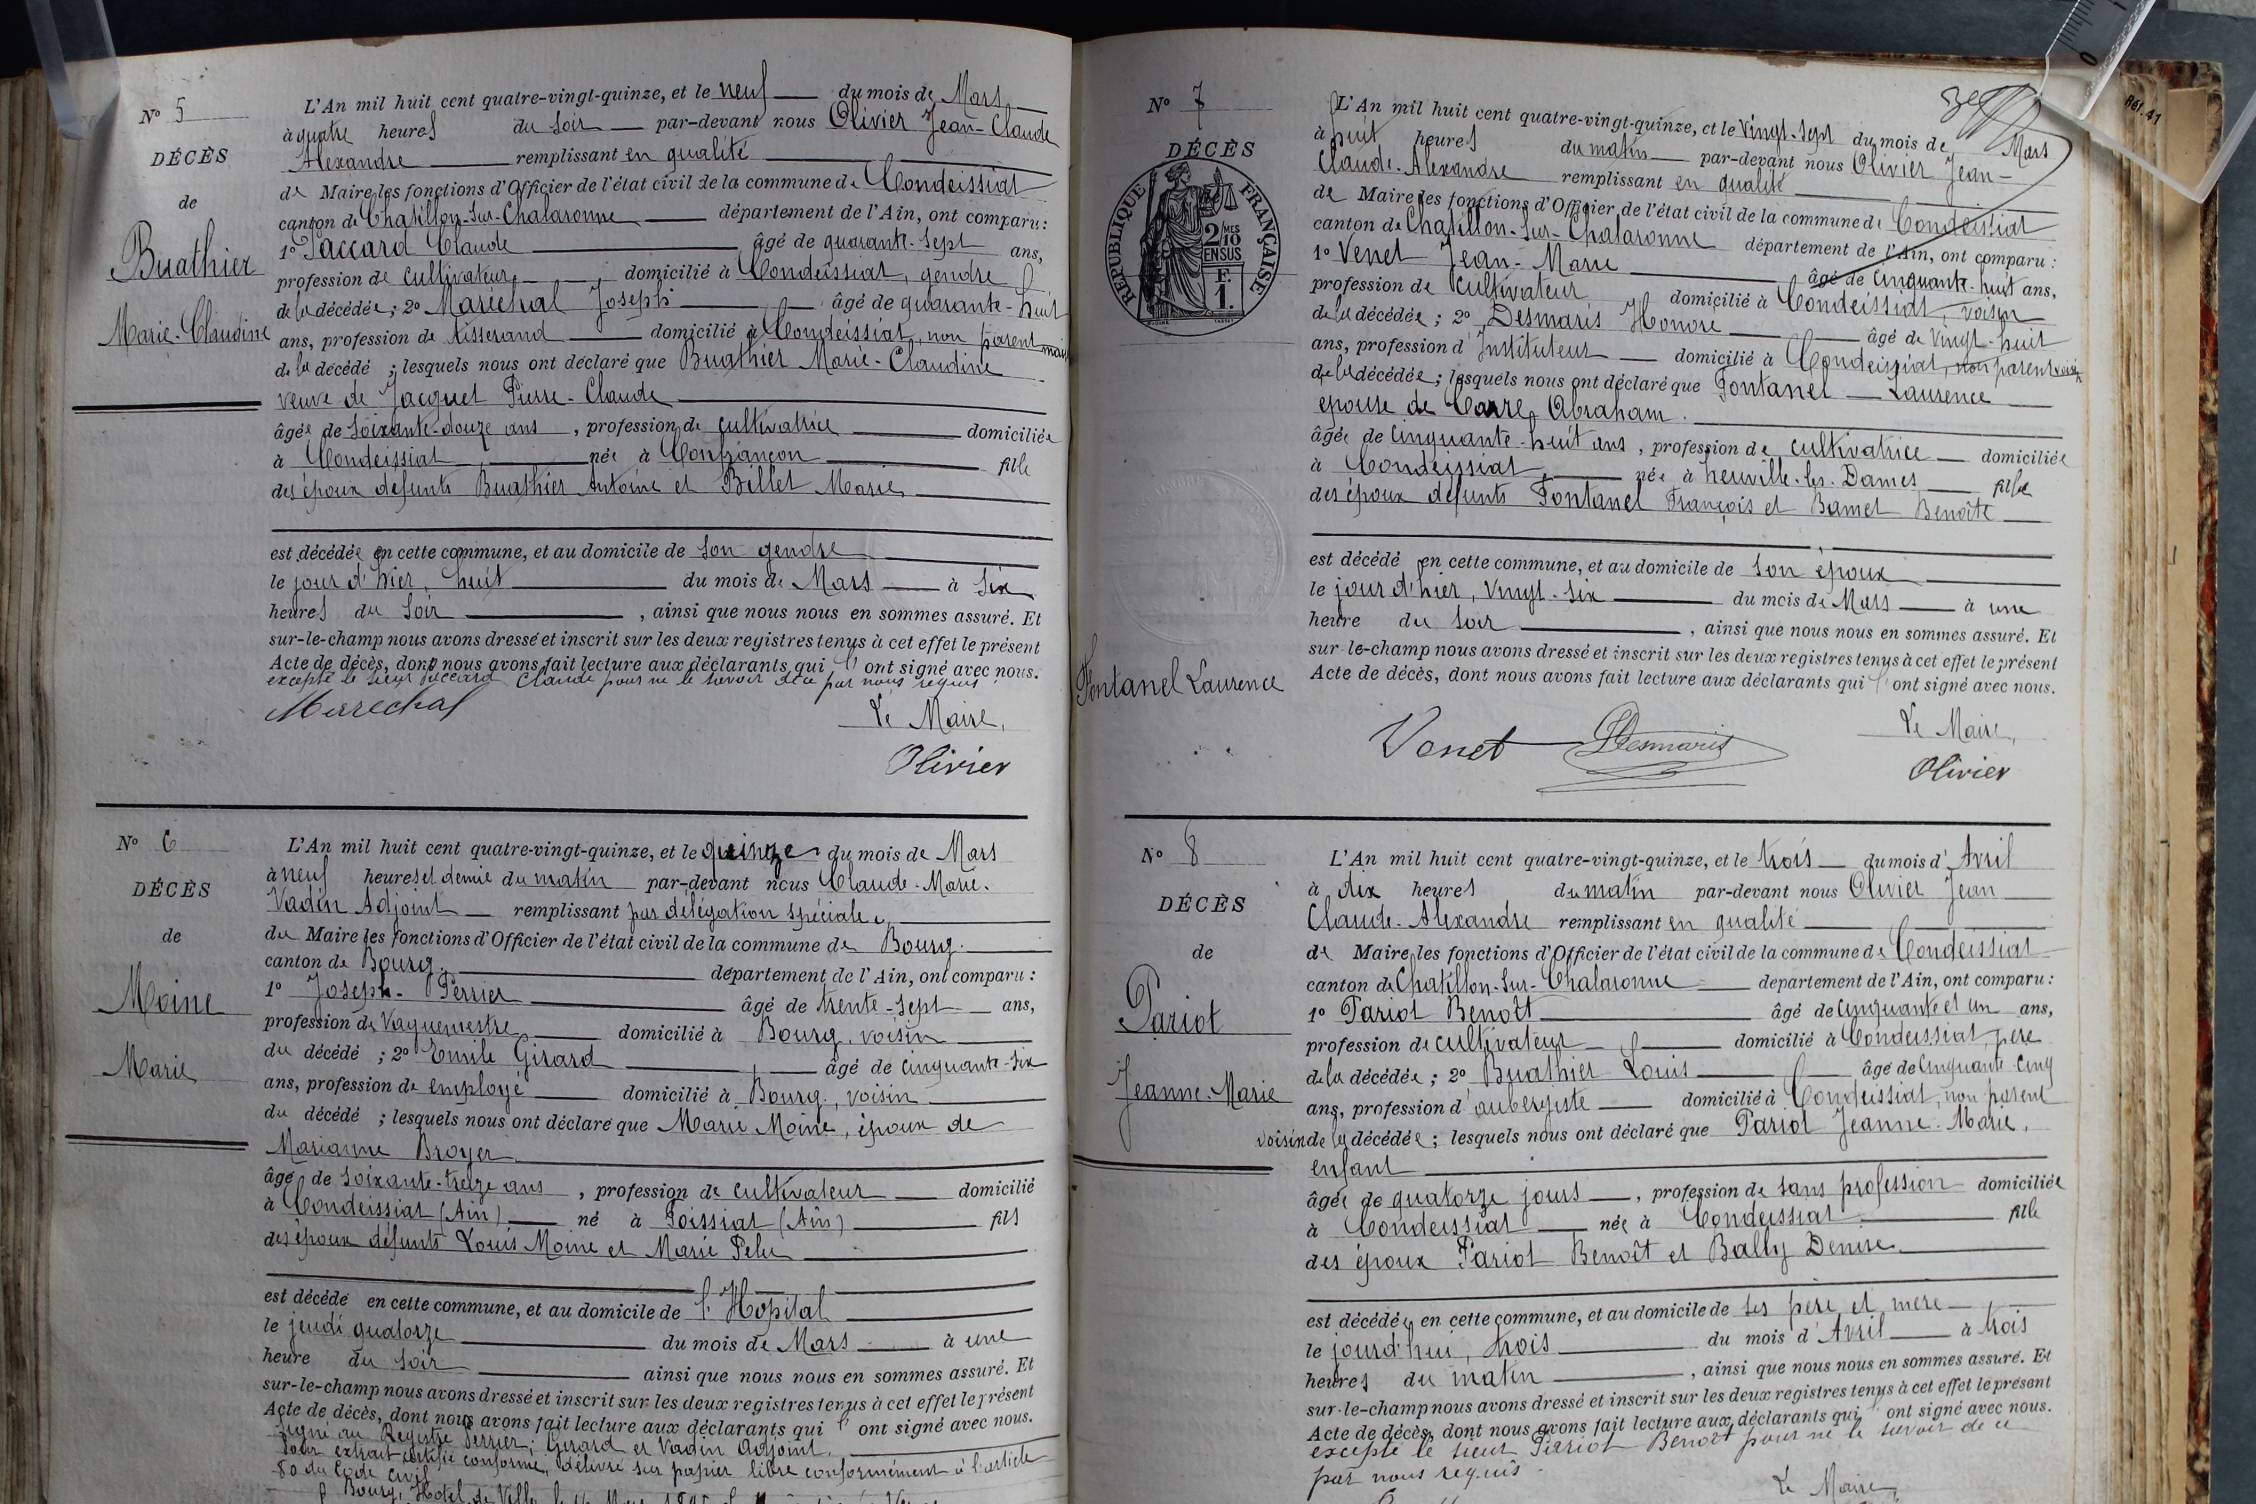 N° 5
DÉCÈS
de
Buathier
Marie-Claudine
L'An mil huit cent quatre-vingt-quinze, et le neuf du mois de Mars
à quatre heures du soir par-devant nous Olivier Jean-Claude
Alexandre remplissant en qualité
de Maire les fonctions d'Officier de l'état civil de la commune de Condeissiat
canton de Chatillon-sur-Chalaronne département de l'Ain, ont comparu :
1° Paccard Claude âgé de quarante-sept ans,
profession de cultivateur domicilié à Condeissiat, gendre
de la décédée ; 2° Maréchal Joseph âgé de quarante-huit
ans, profession de tisserand domicilié à Condeissiat, non parent mais
de la décédé ; lesquels nous ont déclaré que Buathier Marie-Claudine
veuve de Jacquet Pierre-Claude
âgée de soixante-douze ans, profession de cultivatrice domiciliée
à Condeissiat née à Confrançon fille
des époux défunts Buathier Antoine et Billet Marie
est décédée en cette commune, et au domicile de son gendre
le jour d'hier, huit du mois de Mars à six
heures du soir, ainsi que nous nous en sommes assuré. Et
sur-le-champ nous avons dressé et inscrit sur les deux registres tenus à cet effet le présent
Acte de décès, dont nous avons fait lecture aux déclarants qui l'ont signé avec nous.
excepté le sieur Paccard Claude pour ne le savoir de ce par nous requis
Marechal
Le Maire,
Olivier
N° 6
DÉCÈS
de
Moine
Marie
L'An mil huit cent quatre-vingt-quinze, et le quinze du mois de Mars
à neuf heures et demie du matin par-devant nous Claude-Marie
Vadin Adjoint remplissant par délégation spéciale
du Maire les fonctions d'Officier de l'état civil de la commune de Bourg
canton de Bourg département de l'Ain, ont comparu :
1° Joseph Perrier âgé de trente-sept ans,
profession de Vaguemestre domicilié à Bourg, voisin
du décédé ; 2° Emile Girard âgé de cinquante-six
ans, profession de employé domicilié à Bourg, voisin
du décédé ; lesquels nous ont déclaré que Marie Moine, époux de
Marianne Broyer
âgé de soixante-treize ans, profession de cultivateur domicilié
à Condeissiat (Ain) né à Foissiat (Ain) fils
des époux défunts Louis Moine et Marie Pelu
est décédé en cette commune, et au domicile de l'Hopital
le jeudi quatorze du mois de Mars à une
heure du soir ainsi que nous nous en sommes assuré. Et
sur-le-champ nous avons dressé et inscrit sur les deux registres tenus à cet effet le présent
Acte de décès, dont nous avons fait lecture aux déclarants qui l'ont signé avec nous.
Signé au Registre Perrier, Girard et Vadin Adjoint.
Pour extrait certifié conforme, délivré sur papier libre conformément à l'article
80 du Code civil
Bourg, Hotel de Ville
N° 7
DÉCÈS
RÉPUBLIQUE FRANÇAISE
2/10 MES
EN SUS
F.
1.
Fontanel Laurence
L'An mil huit cent quatre-vingt-quinze, et le vingt-sept du mois de Mars
à huit heures du matin par-devant nous Olivier Jean-
Claude-Alexandre remplissant en qualité
de Maire les fonctions d'Officier de l'état civil de la commune de Condeissiat
canton de Chatillon-sur-Chalaronne département de l'Ain, ont comparu :
1° Venet Jean-Marie âgé de cinquante-huit ans,
profession de cultivateur domicilié à Condeissiat, voisin
de la décédée ; 2° Desmaris Honoré âgé de vingt-huit
ans, profession d'Instituteur domicilié à Condeissiat, non parent voisin
de la décédée ; lesquels nous ont déclaré que Fontanel Laurence
épouse de Carre Abraham.
âgée de cinquante-huit ans, profession de cultivatrice domiciliée
à Condeissiat née à Neuville-les-Dames fille
des époux défunts Fontanel François et Bamet Benoîte
est décédé en cette commune, et au domicile de son époux
le jour d'hier, vingt-six du mois de Mars à une
heure du soir, ainsi que nous nous en sommes assuré. Et
sur-le-champ nous avons dressé et inscrit sur les deux registres tenus à cet effet le présent
Acte de décès, dont nous avons fait lecture aux déclarants qui l'ont signé avec nous.
Venet Desmaris
Le Maire,
Olivier
N° 8
DÉCÈS
de
Pariot
Jeanne-Marie
L'An mil huit cent quatre-vingt-quinze, et le trois du mois d'Avril
à dix heures du matin par-devant nous Olivier Jean
Claude-Alexandre remplissant en qualité
de Maire les fonctions d'Officier de l'état civil de la commune de Condeissiat
canton de Chatillon-sur-Chalaronne département de l'Ain, ont comparu :
1° Pariot Benoît âgé de cinquante et un ans,
profession de cultivateur domicilié à Condeissiat, père
de la décédée ; 2° Buathier Louis âgé de cinquante-cinq
ans, profession d'aubergiste domicilié à Condeissiat, non parent
voisin de la décédée ; lesquels nous ont déclaré que Pariot Jeanne-Marie,
enfant
âgée de quatorze jours, profession de sans profession domiciliée
à Condeissiat née à Condeissiat fille
des époux Pariot Benoît et Bally Denise
est décédée en cette commune, et au domicile de ses père et mère
le jourd'hui, trois du mois d'Avril à trois
heures du matin, ainsi que nous nous en sommes assuré. Et
sur-le-champ nous avons dressé et inscrit sur les deux registres tenus à cet effet le présent
Acte de décès, dont nous avons fait lecture aux déclarants qui l'ont signé avec nous.
excepté le sieur Pariot Benoît pour ne le savoir de ce
par nous requis.
Le Maire,